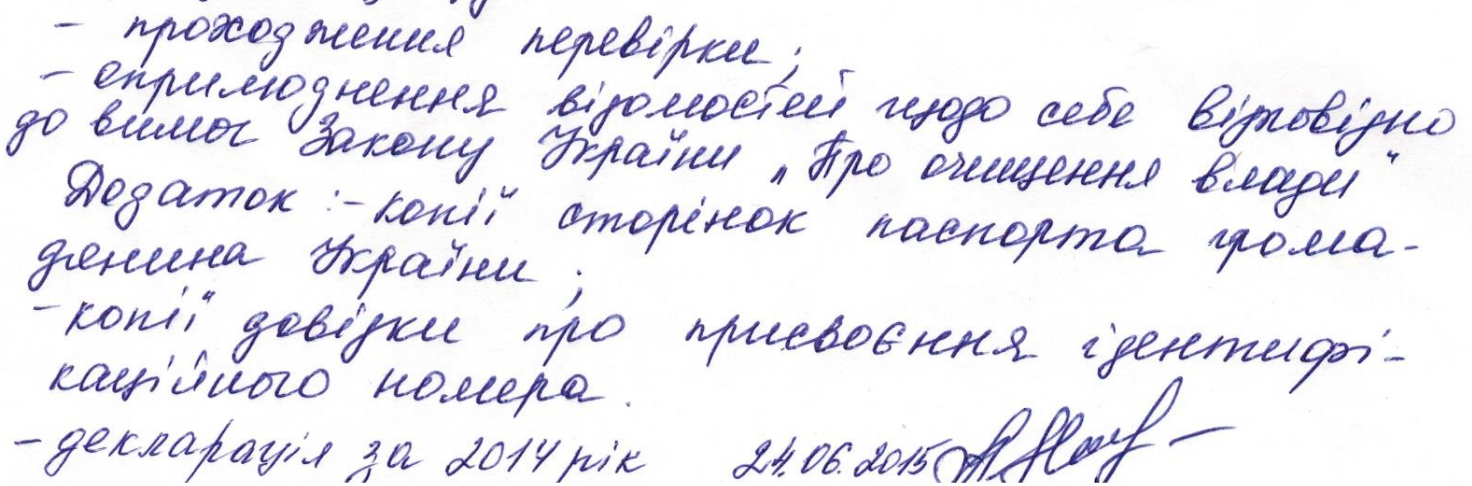 - проходження перевірки;
- оприлюднення відомостей щодо себе відповідно
до вимог Закону України „Про очищення влади"
Додаток :- копії сторінок паспорта грома-
дянина України ;
- копії довідки про присвоєння ідентифі-
каційного номера.
- декларація за 2014 рік 24.06.2015